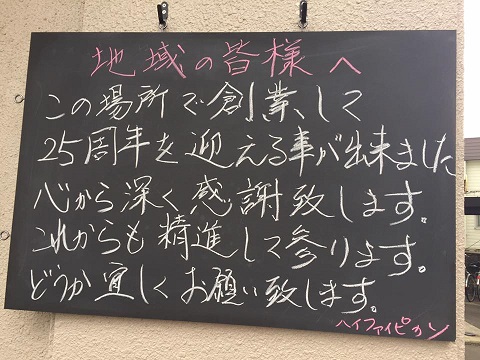 地域の皆様へ
この場所で創業して
25周年を迎える事が出来ました
心から深く感謝致します。
これからも精進して参ります。
どうか宜しくお願い致します。
ハイファイピカソ